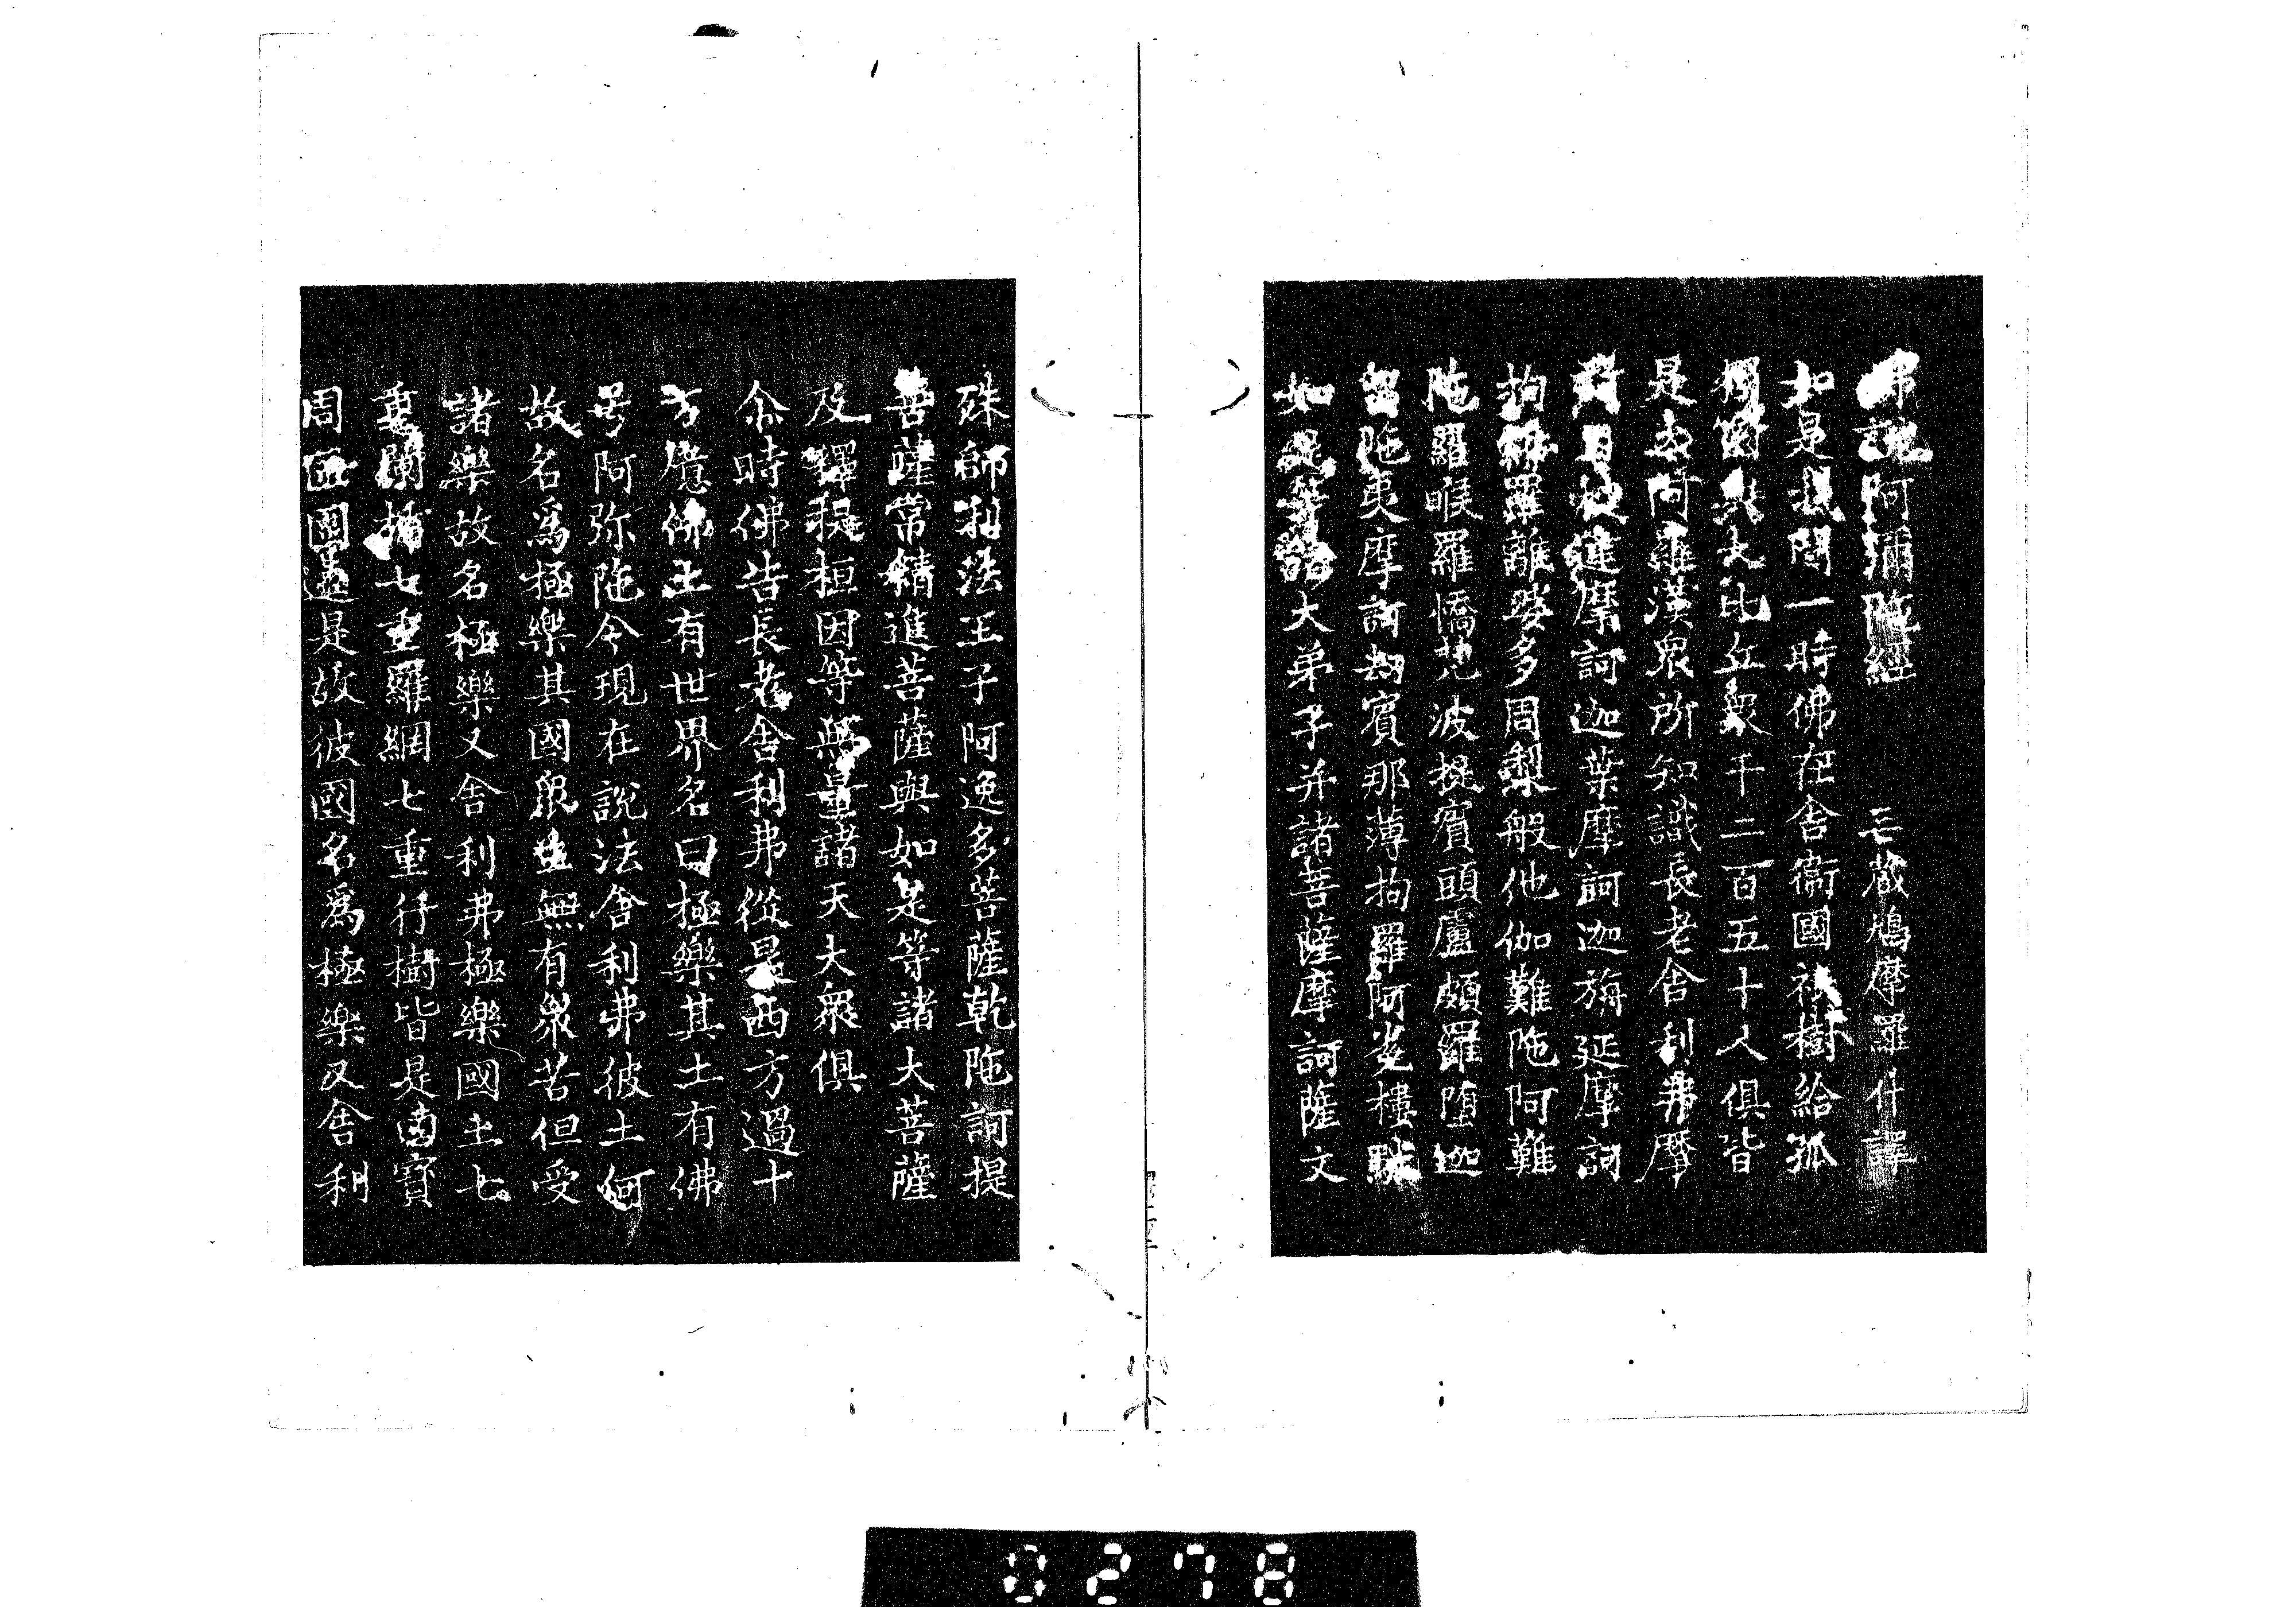 佛說阿彌陁經　三藏鳩摩羅什譯
如是我聞一時佛在舎衞國祇樹給孤
獨園與大比丘衆千二百五十人俱皆
是大阿羅漢衆所知識長老舎利弗摩
訶目揵連摩訶迦葉摩訶迦旃延摩訶
拘絺羅離婆多周梨般他伽難陁阿難
陁羅睺羅憍梵波提賓頭盧頗羅墮迦
留陁夷摩訶劫賓那薄拘羅阿㝹樓馱
如是等諸大弟子并諸菩薩摩訶薩文
殊師利法王子阿逸多菩薩乾陁訶提
菩薩常精進菩薩與如是等諸大菩薩
及釋提桓因等無量諸天大衆俱
尒時佛告長老舎利弗從是西方過十
万億佛土有世界名曰極樂其土有佛
号阿弥陁今現在說法舎利弗彼土何
故名爲極樂其國衆生無有衆苦但受
諸樂故名極樂又舎利弗極樂國土七
重欄楯七重羅網七重行樹皆是寶
周匝圍遶是故彼國名爲極樂又舎利
0278